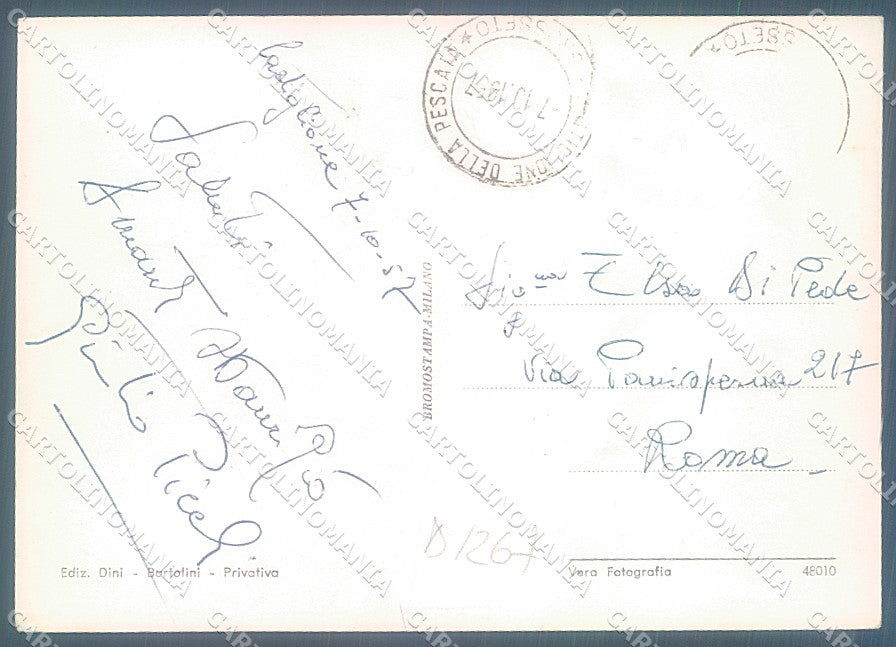 Castiglione 7-10-57
Saluti
Giulio
CASTIGLIONE DELLA PESCAIA
* GROSSETO *
-7.10.1957
SSETO *
BROMOSTAMPA-MILANO
Sig.na Elisa Di Pede
Via Panisperna 217
Roma
D1267
Ediz. Dini - Bartolini - Privativa
Vera Fotografia
48010
CARTOLINOMANIA